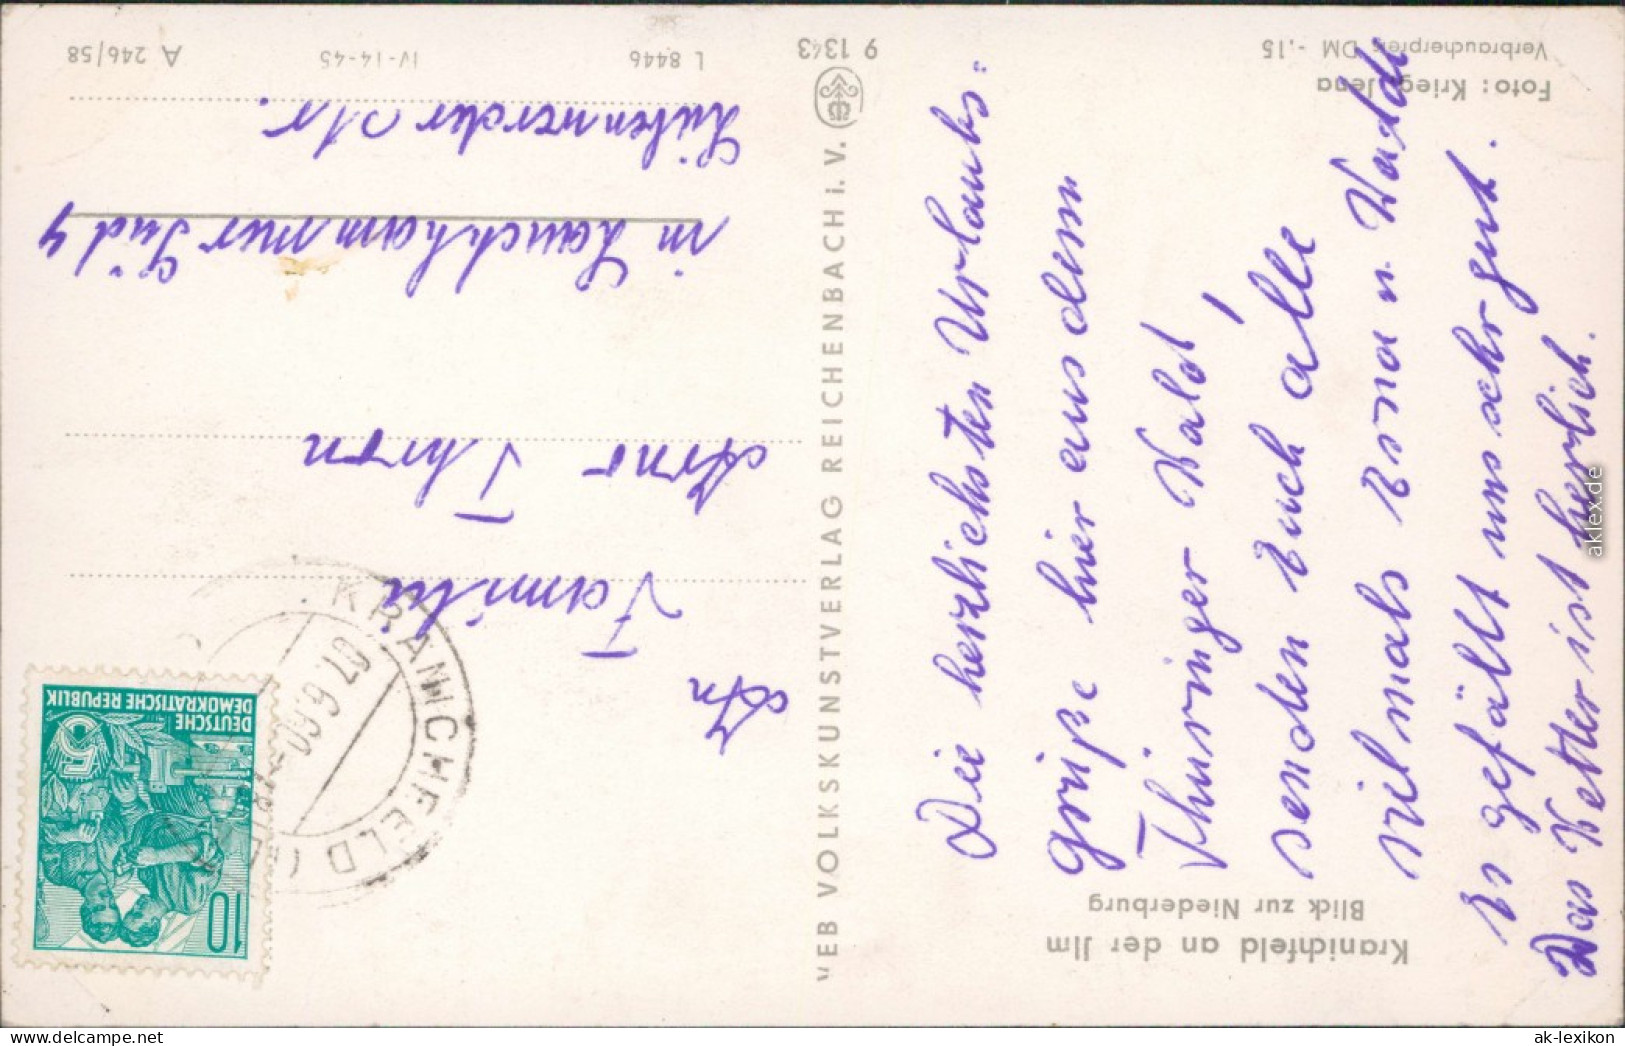 Kranichfeld an der Jlm
Blick zur Niederburg
Die herzlichsten Urlaubs=
grüße hier aus dem
Thüringer Wald,
senden Euch alle
vielmals Erna u.
Es gefällt uns sehr gut.
Das Wetter ist herlich.
Foto: Krieg, Jena
Verbraucherpreis DM -.15
VEB VOLKSKUNSTVERLAG REICHENBACH i. V.
9 1343
DEUTSCHE
DEMOKRATISCHE REPUBLIK
10
KRANICHFELD
07.6.60
An
Familie
Arno Thron
in Lauchhammer Süd 4
Str.
L 8446
IV-14-45
A 246/58
aklex.de
ak-lexikon